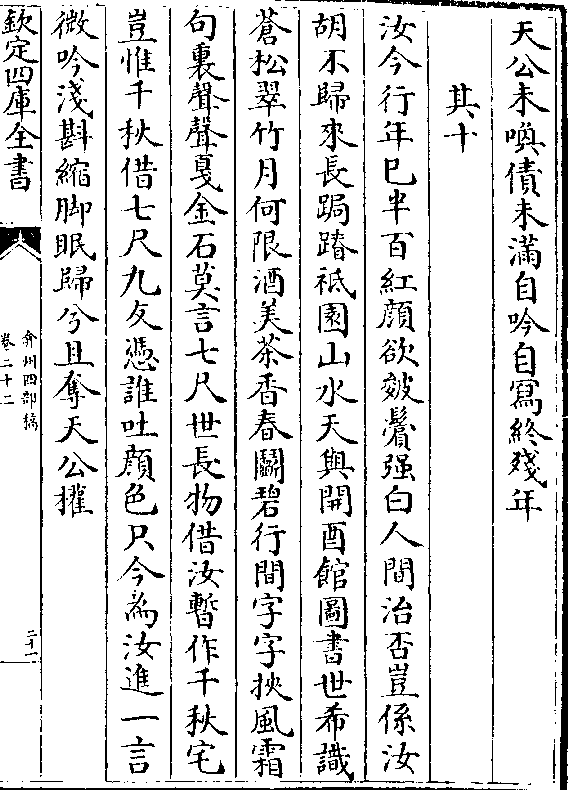 天公未喚債未滿自吟自寫終殘年
其十
汝今行年已半百紅顔欲皴鬢强白人間治否豈係汝
胡不歸來長跼蹐祇園山水天與開酉館圖書世希識
蒼松翠竹月何限酒美茶香春鬭碧行間字字挾風霜
句裏聲聲戛金石莫言七尺世長物借汝暫作千秋宅
豈惟千秋借七尺九友慿誰吐顔色只今為汝進一言
微吟淺斟縮脚眠歸兮且奪天公㩲
欽定四庫全書
弇州四部稿
卷二十二
二十一